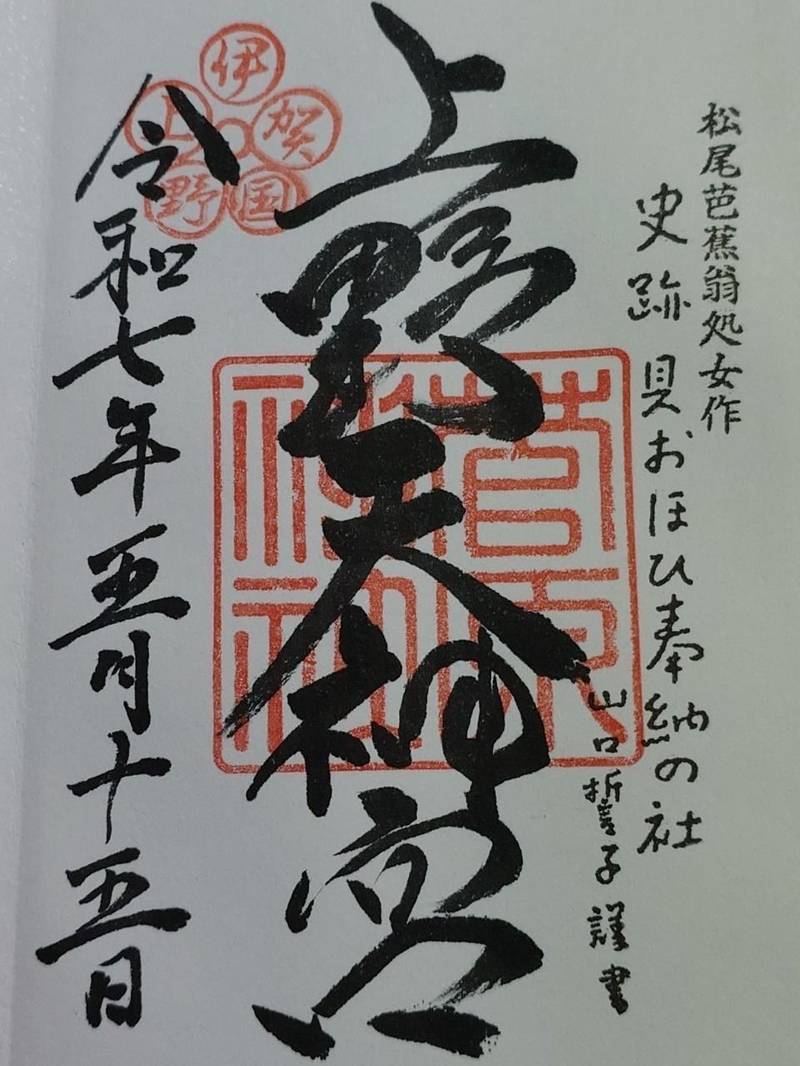 松尾芭蕉翁処女作
史跡 貝おほひ奉納の社
山口誓子謹書
上野天神宮
伊賀国上野
菅原神社
令和七年五月十五日